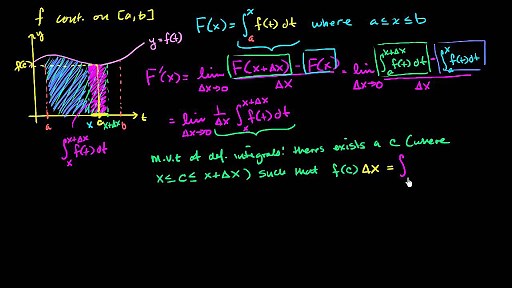 f cont. on [a,b]
F(x) = ∫_a^x f(t) dt where a ≤ x ≤ b
y
y = f(t)
f(c)
a x c x+Δx b t
∫_x^{x+Δx} f(t) dt
F'(x) = lim_{Δx→0} (F(x+Δx) - F(x))/Δx = lim_{Δx→0} (∫_a^{x+Δx} f(t) dt - ∫_a^x f(t) dt)/Δx
= lim_{Δx→0} 1/Δx ∫_x^{x+Δx} f(t) dt
m.v.t of def. integrals: there exists a c (where
x ≤ c ≤ x+Δx) such that f(c) Δx = ∫